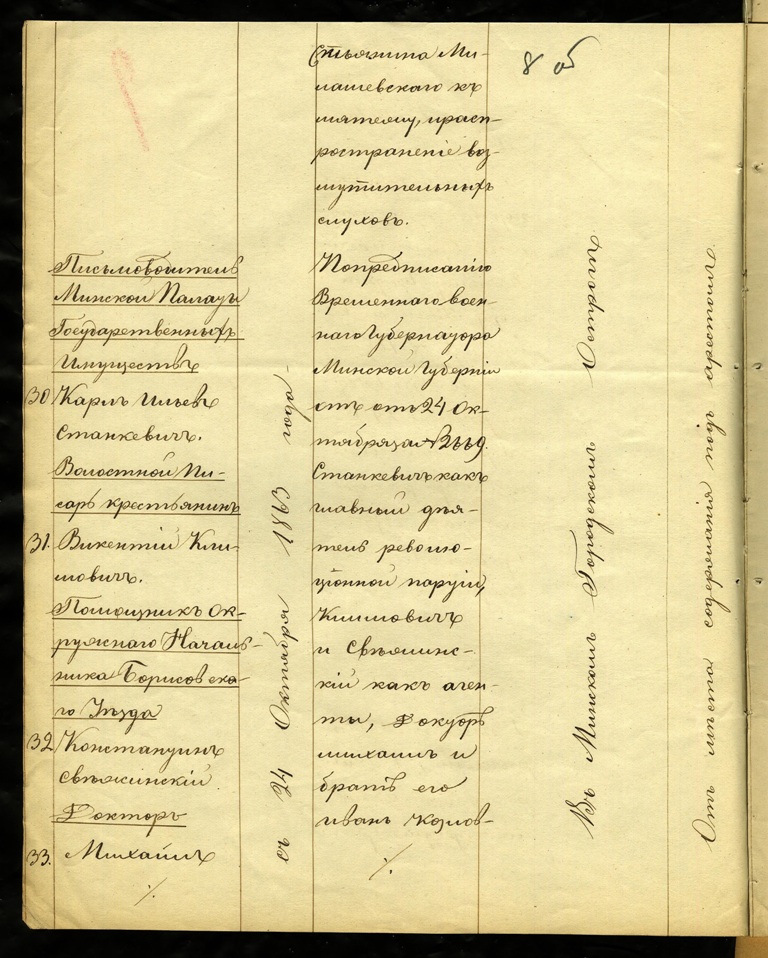 8 об
Письмоводитель
Минской Палаты
Государственныхъ
Имуществъ
30 Карлъ Ильевъ
Станкевичъ.
Волостной Пи-
сарь крестьянинъ
31. Викентій Кли-
мовичъ.
Помощникъ Ок-
ружнаго Началь-
ника Борисовска-
го Уѣзда
32 Константинъ
Свѣжинскій
Докторъ
33. Михаилъ
./.
съ 24 Октября 1863 года
стьянина Ми-
лашевскаго къ
мятежу, и расп-
ространеніе воз-
мутительныхъ
слуховъ.
По предписанію
Временнаго воен-
наго Губернатора
Минской Губерніи
отъ 24 Ок-
тября за № 2669.
Станкевичъ какъ
главный дѣя-
тель револю-
ціонной партіи,
Климовичъ
и Свѣжинс-
кій какъ аген-
ты, Докторъ
Михаилъ и
братъ его
Иванъ Козлов-
./.
Въ Минскомъ Городскомъ Острогѣ
Отъ мѣста содержанія подъ арестомъ